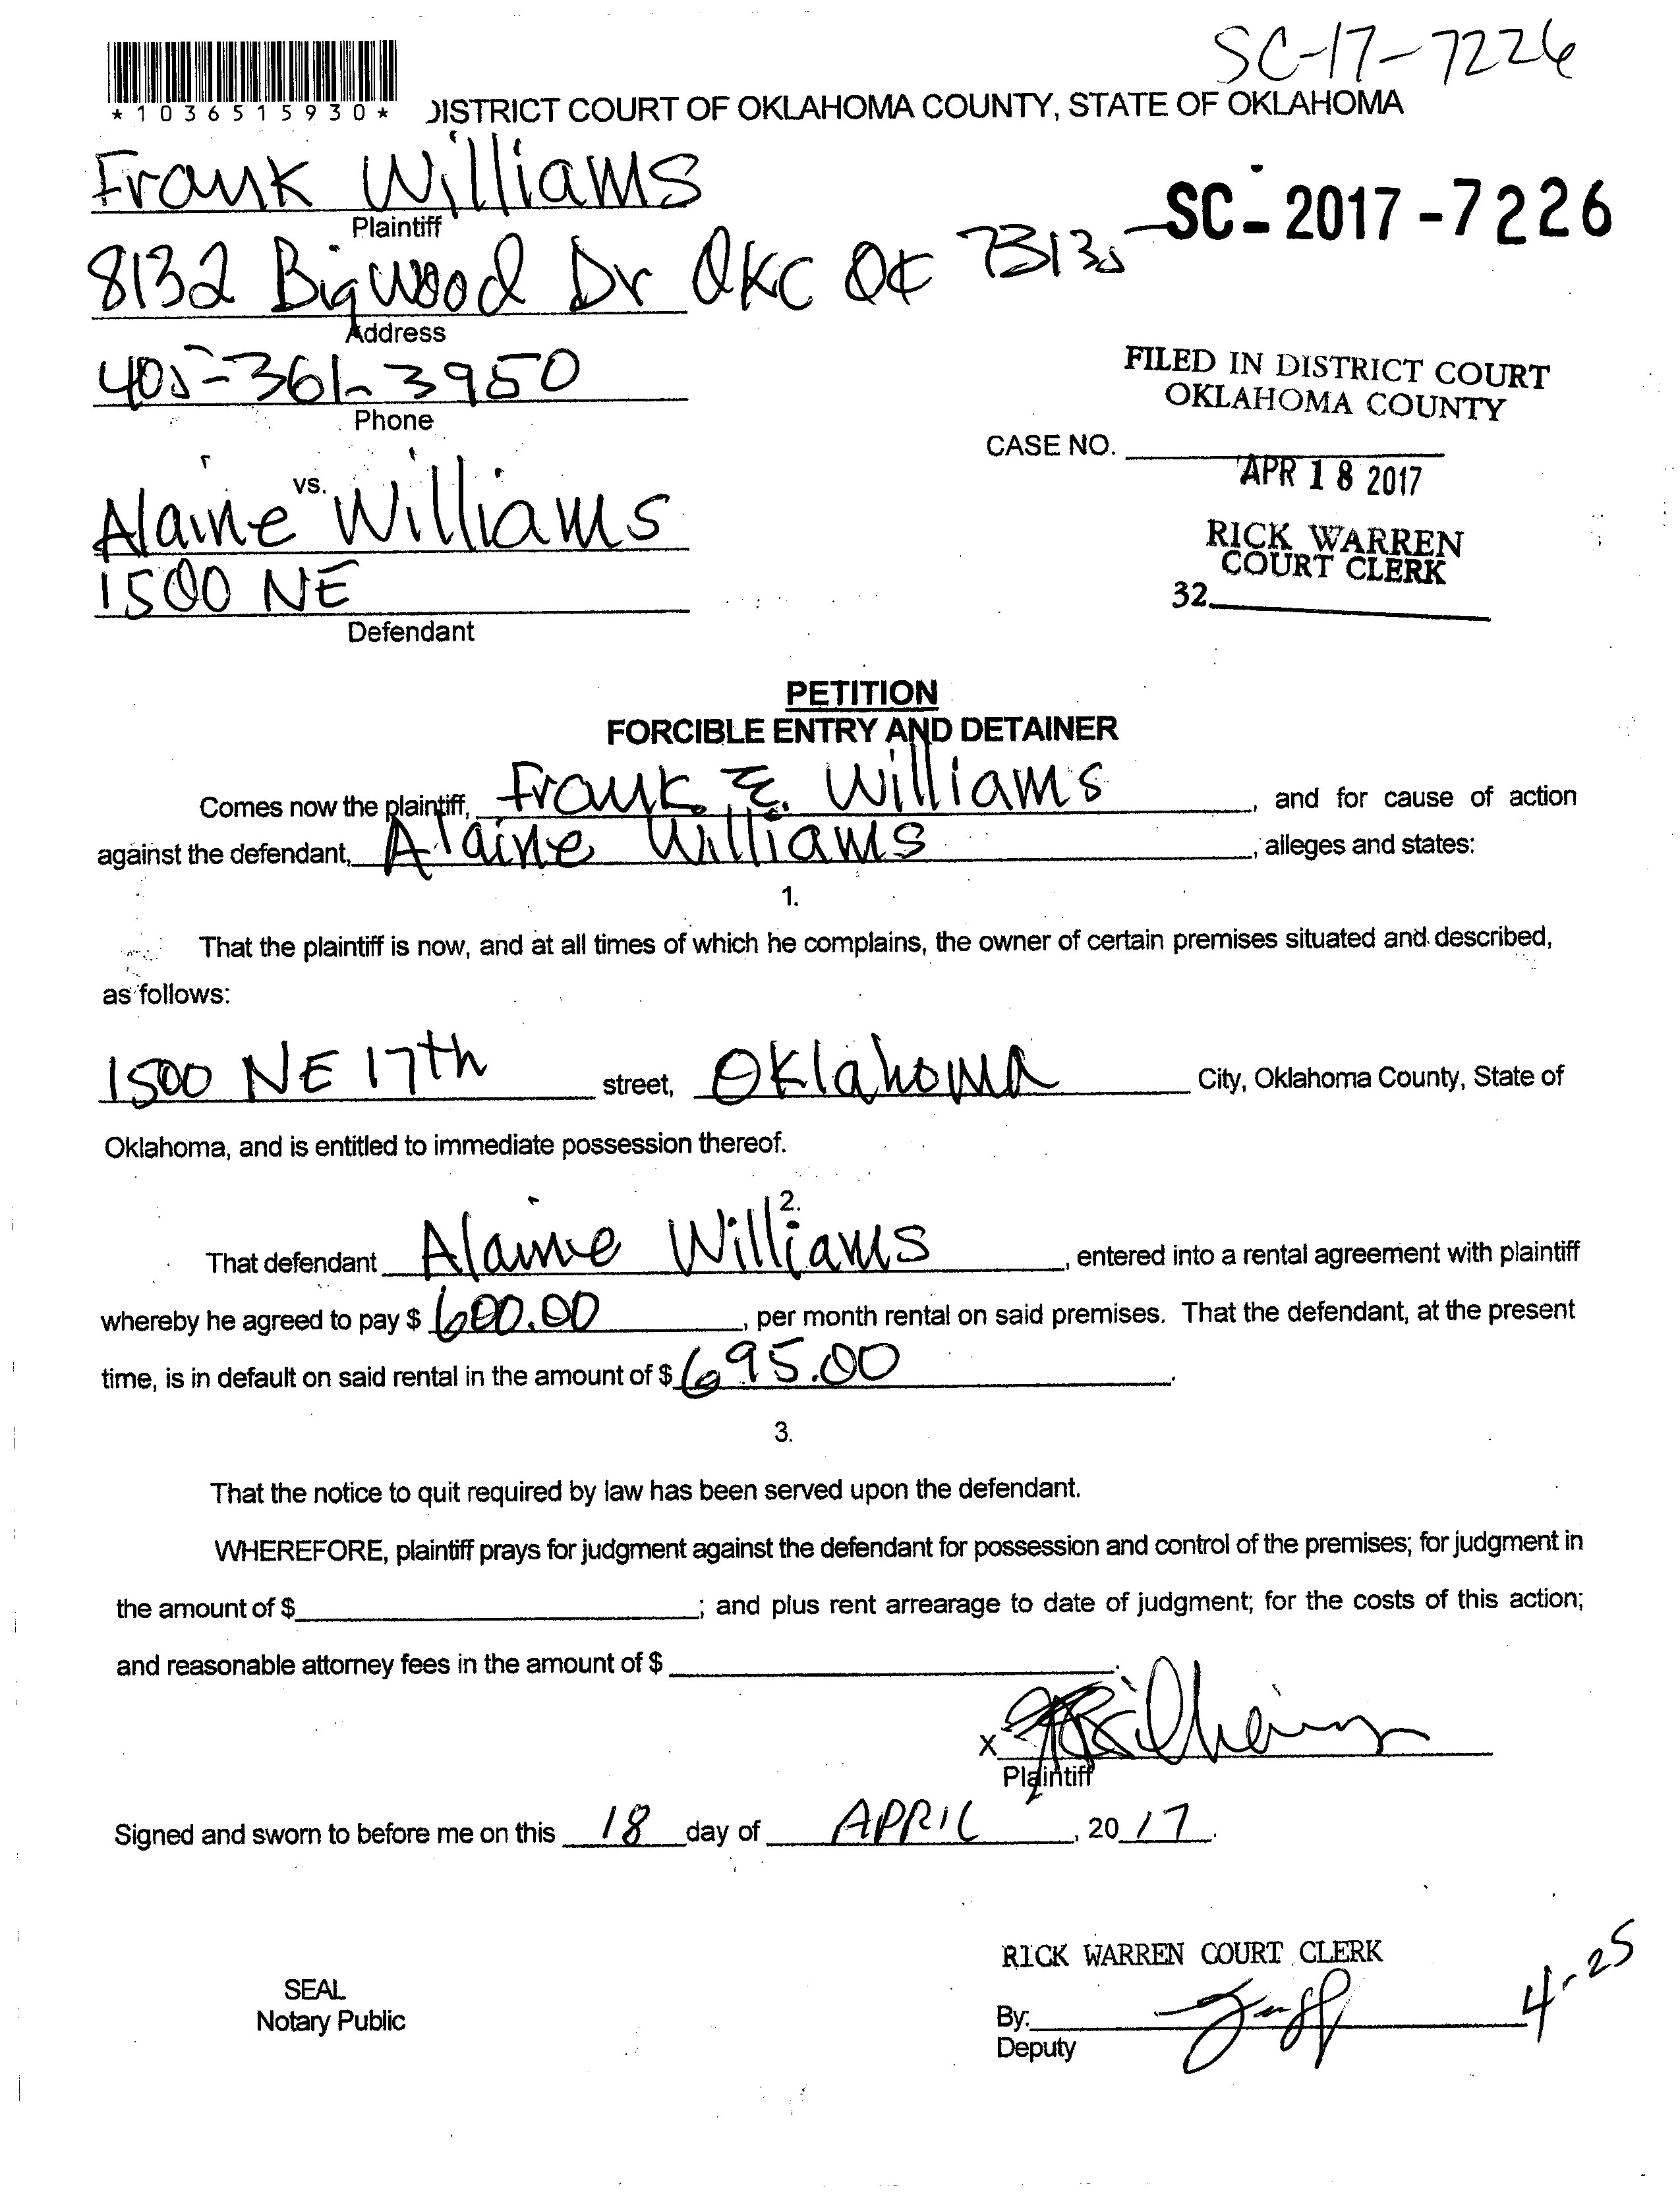 SC-17-7226
*1036515930*
DISTRICT COURT OF OKLAHOMA COUNTY, STATE OF OKLAHOMA
Frank Williams
Plaintiff
SC-2017-7226
8132 Bigwood Dr OKC OK 73135
Address
405-361-3950
Phone
FILED IN DISTRICT COURT
OKLAHOMA COUNTY
CASE NO.
APR 18 2017
vs.
Alaine Williams
RICK WARREN
COURT CLERK
1500 NE
32
Defendant
PETITION
FORCIBLE ENTRY AND DETAINER
Comes now the plaintiff, Frank E. Williams, and for cause of action
against the defendant, Alaine Williams, alleges and states:
1.
That the plaintiff is now, and at all times of which he complains, the owner of certain premises situated and described,
as follows:
1500 NE 17th street, Oklahoma City, Oklahoma County, State of
Oklahoma, and is entitled to immediate possession thereof.
2.
That defendant Alaine Williams, entered into a rental agreement with plaintiff
whereby he agreed to pay $ 600.00, per month rental on said premises. That the defendant, at the present
time, is in default on said rental in the amount of $ 695.00.
3.
That the notice to quit required by law has been served upon the defendant.
WHEREFORE, plaintiff prays for judgment against the defendant for possession and control of the premises; for judgment in
the amount of $; and plus rent arrearage to date of judgment; for the costs of this action;
and reasonable attorney fees in the amount of $.
X
Plaintiff
Signed and sworn to before me on this 18 day of APRIL, 2017.
RICK WARREN COURT CLERK
SEAL
Notary Public
By:
4-25
Deputy